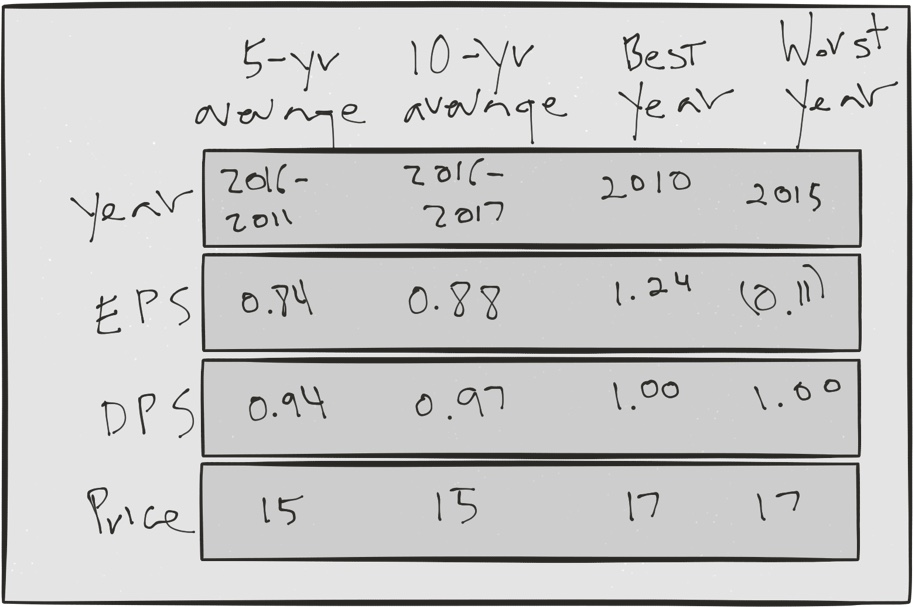 5-yr average 10-yr average Best Year Worst Year
Year 2016-2011 2016-2017 2010 2015
EPS 0.84 0.88 1.24 (0.11)
DPS 0.94 0.97 1.00 1.00
Price 15 15 17 17